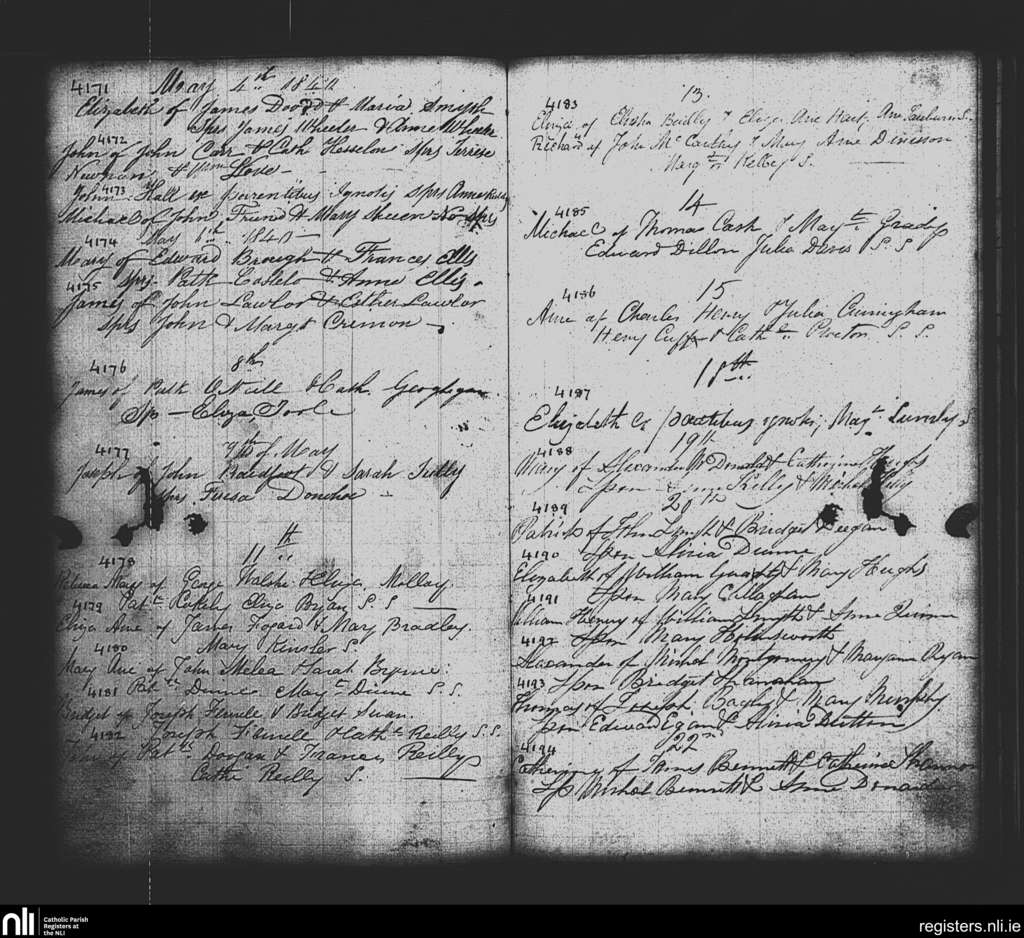 4171 May 4th 1840
Elizabeth of James & Maria Smyth
Sprs James Wheeler & Anne Wheeler
4172
John of John Carr & Cath Hesselon Sprs Terrese
Newman & Love
4173
John Hall ex parentibus Ignotis Sprs Anne
Michael of John Friend & Mary No Sprs
4174 May 1840
Mary of Edward Brough & Frances Ellis
Sprs Patk Costelo & Anne Ellis
4175
James of John Lawlor & Esther Lawlor
Sprs John & Margt Cremon
4176 8th
James of Patk O Neill & Cath. Geoghegan
Sp Eliza Toole
4177 9th of May
Joseph of John & Sarah Tully
Sprs Teresa Donohoe
11th
4178
Mary of George Walshe & Eliza Molloy
4179 Patk Eliza Bryan S. S
Eliza Anne of James Fogard & Mary Bradley.
4180 Mary Kinsler S.
Mary Anne of John Melea & Sarah Byrne
4181 Patk Dunne Margt Dunne S. S.
Bridget of Joseph Fewelle & Bridget Swan.
4182 Joseph Fewelle & Cathn Reilly S. S.
of Patk Doogan & Frances Reilly
Cathe Reilly S.
13.
4183
Eliza of Elisha Bailly & Eliza Ane Hart, Ann S.
Richard of John McCarthy & Mary Anne Dinison
Margt Kelly S.
14
4185
Michael of Thomas Cash & Margt Grady
Edward Dillon Julia Davis S. S
15
4186
Anne of Charles Henry & Julia Cuningham
Henry Cuffe & Cathne Procton S. S.
18th
4187
Elizabeth ex parentibus ignotis; Margt Lundy S
19th
4188
Mary of Alexander McDonald & Catherine Hughs
Spon Kelly & Michol
20th
4189
Patrick of John Lynch & Bridget Deegan
Spon Dunne
4190
Elizabeth of William & Mary Hughs
Spon Mary Callaghan
4191
William Henery of William Smyth & Anne Quinn
Spon Mary Holdsworth
4192
Alexander of Michol Montgomery & Maryann Ryan
Spon Bridget Hanahan
4193
Thomas of Joseph Bagley & Mary Murphy
Spon Edward Egan &
22nd
4194
Catherine of James Bennett & Catherine Shannon
Sp Michol Bennett & Anne
nli
Catholic Parish
Registers at
the NLI
registers.nli.ie